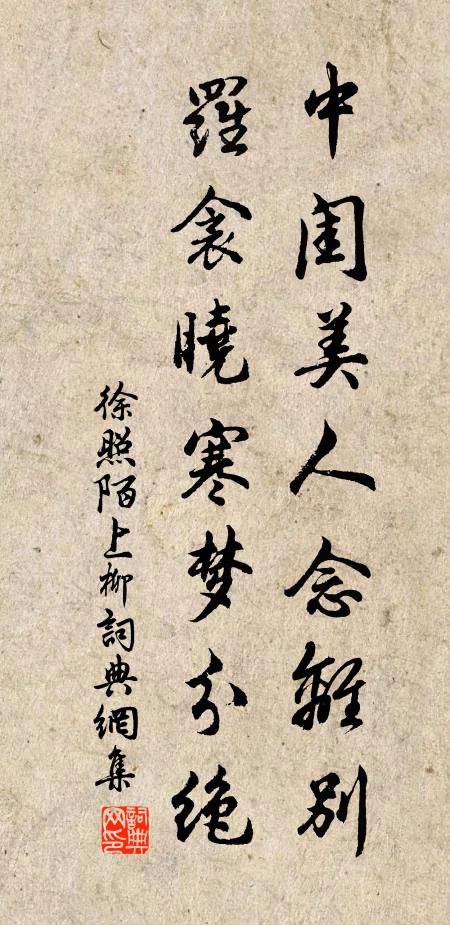 中闺美人念離别
羅衾曉寒梦分绝
徐照陌上柳詞典網集
詞典网印